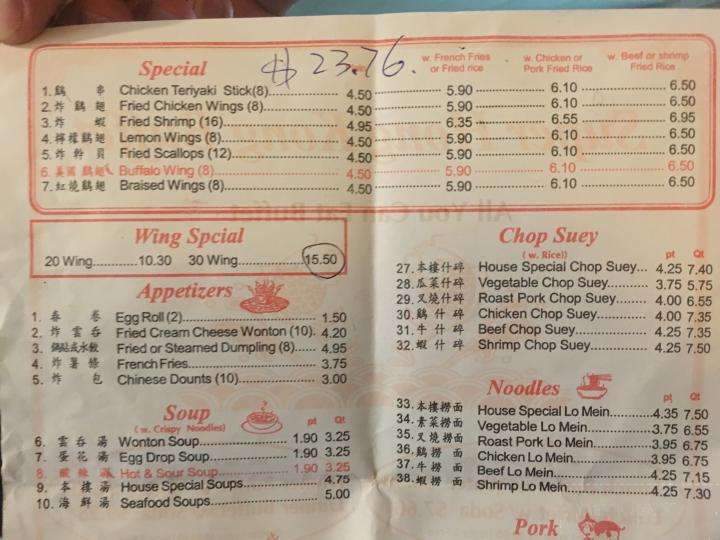 $23.76.
Special w. French Fries or Fried rice w. Chicken or Pork Fried Rice w. Beef or shrimp Fried Rice
1. 鷄 串 Chicken Teriyaki Stick(8) 4.50 5.90 6.10 6.50
2. 炸 鷄 翅 Fried Chicken Wings (8) 4.50 5.90 6.10 6.50
3. 炸 蝦 Fried Shrimp (16) 4.95 6.35 6.55 6.95
4. 檸檬鷄翅 Lemon Wings (8) 4.50 5.90 6.10 6.50
5. 炸 幹 貝 Fried Scallops (12) 4.50 5.90 6.10 6.50
6. 美國鷄翅 Buffalo Wing (8) 4.50 5.90 6.10 6.50
7. 紅燒鷄翅 Braised Wings (8) 4.50 5.90 6.10 6.50
Wing Spcial
20 Wing 10.30 30 Wing 15.50
Appetizers
1. 春 卷 Egg Roll (2) 1.50
2. 炸 雲 吞 Fried Cream Cheese Wonton (10). 4.20
3. 鍋貼或水餃 Fried or Steamed Dumpling (8) 4.95
4. 炸 薯 條 French Fries 3.75
5. 炸 包 Chinese Dounts (10) 3.00
Soup
( w. Crispy Noodles) pt Qt
6. 雲 吞 湯 Wonton Soup 1.90 3.25
7. 蛋 花 湯 Egg Drop Soup 1.90 3.25
8. 酸 辣 湯 Hot & Sour Soup 1.90 3.25
9. 本 樓 湯 House Special Soups 4.75
10. 海 鮮 湯 Seafood Soups 5.00
Chop Suey
( w. Rice)) pt Qt
27. 本樓什碎 House Special Chop Suey... 4.25 7.40
28. 瓜菜什碎 Vegetable Chop Suey 3.75 5.75
29. 叉燒什碎 Roast Pork Chop Suey 4.00 6.55
30. 鷄 什 碎 Chicken Chop Suey 4.00 7.35
31. 牛 什 碎 Beef Chop Suey 4.25 7.35
32. 蝦 什 碎 Shrimp Chop Suey 4.25 7.50
Noodles
pt Qt
33. 本樓撈面 House Special Lo Mein 4.35 7.50
34. 素菜撈面 Vegetable Lo Mein 3.75 6.55
35. 叉燒撈面 Roast Pork Lo Mein 3.95 6.75
36. 鷄撈面 Chicken Lo Mein 3.95 6.75
37. 牛撈面 Beef Lo Mein 4.25 7.15
38. 蝦撈面 Shrimp Lo Mein 4.25 7.30
Pork